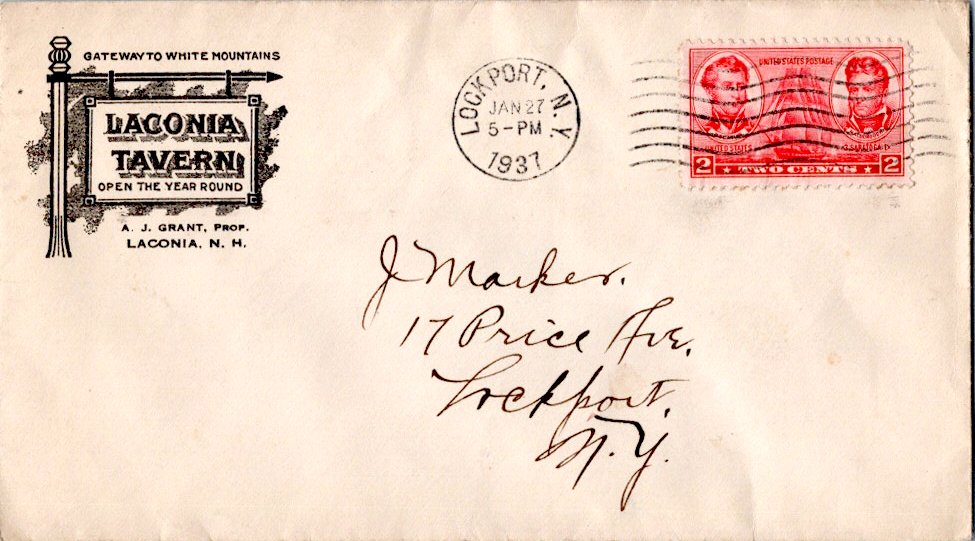 GATEWAY TO WHITE MOUNTAINS
LACONIA
TAVERN
OPEN THE YEAR ROUND
A. J. GRANT, PROP.
LACONIA, N. H.
LOCKPORT, N. Y.
JAN 27
5-PM
1937
UNITED STATES POSTAGE
UNITED STATES
SARATOGA
2 TWO CENTS 2
J Marker.
17 Price Ave.
Lockport,
N.Y.